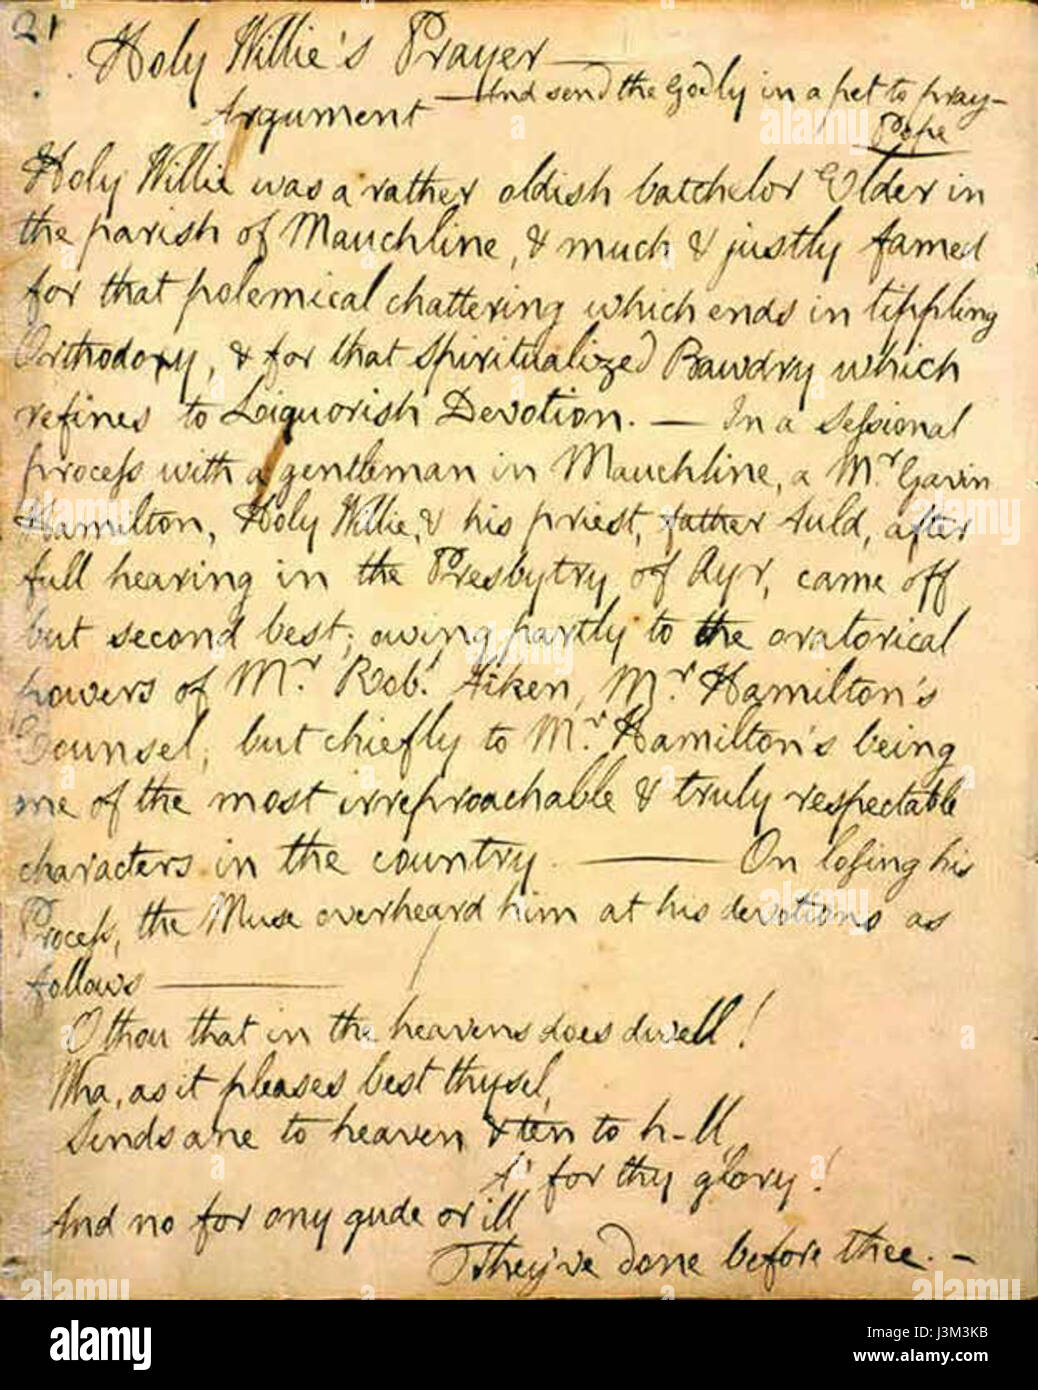 21
Holy Willie's Prayer —
— And send the Godly in a pet to pray —
Argument
Pope
Holy Willie was a rather oldish batchelor Elder in
the parish of Mauchline, & much & justly famed
for that polemical chattering which ends in tippling
Orthodoxy, & for that spiritualized Bawdry which
refines to Liquorish Devotion. — In a Sessional
process with a gentleman in Mauchline, a Mr. Gavin
Hamilton, Holy Willie, & his priest, father Auld, after
full hearing in the Presbytry of Ayr, came off
but second best; owing partly to the oratorical
powers of Mr. Robt. Aiken, Mr. Hamilton's
Counsel; but chiefly to Mr. Hamilton's being
one of the most irreproachable & truly respectable
characters in the country. — On losing his
Process, the Muse overheard him at his devotions as
follows —
O thou that in the heavens does dwell!
Wha, as it pleases best thysel,
Sends ane to heaven & ten to h-ll,
A' for thy glory!
And no for ony gude or ill
They've done before thee. —
alamy
Image ID: J3M3KB
www.alamy.com